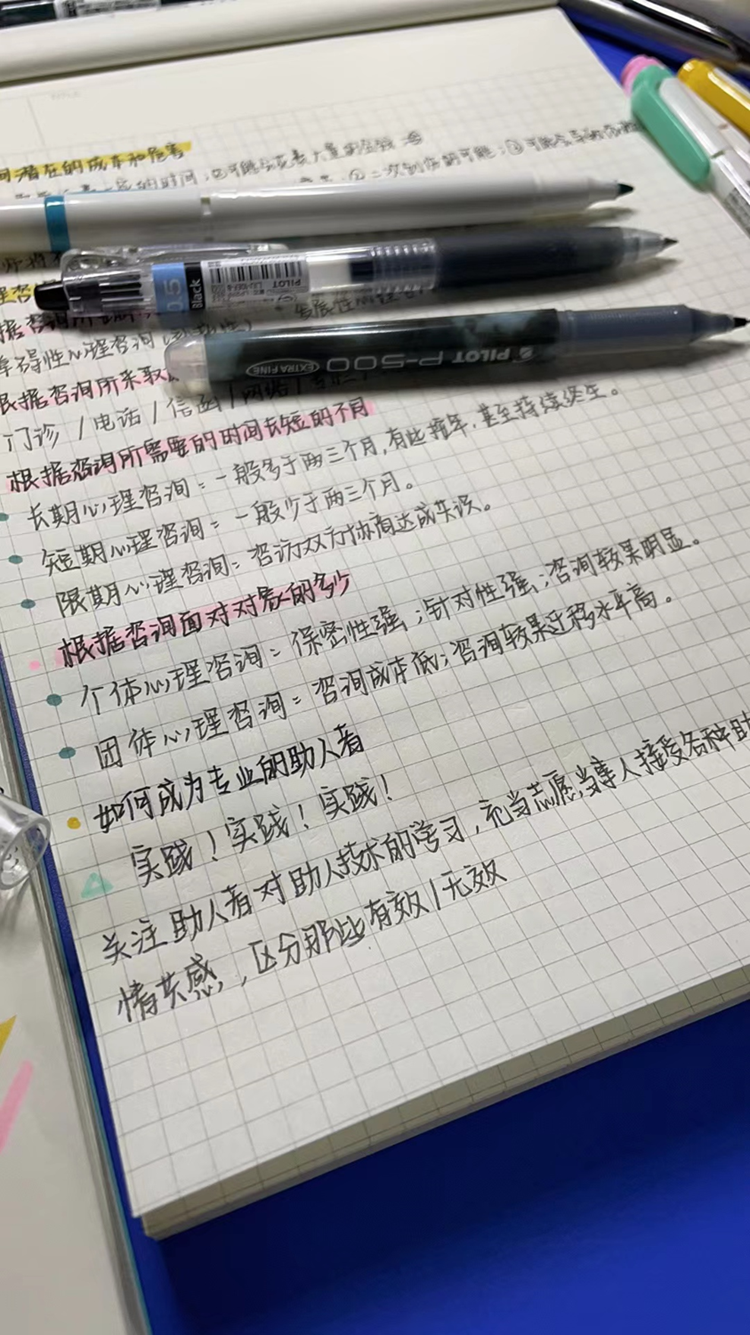 潜在的成本和危害
的时间,也可能会花费大量的金钱
二次创伤的可能;③可能会
0.5 Black PILOT
PILOT P-500 EXTRA FINE
发展性心理咨
障碍性心理咨询
根据咨询所采取
门诊/电话/信函/网络/
根据咨询所需要的时间长短的不同
长期心理咨询:一般多于两三个月,有些携年,甚至持续终生。
短期心理咨询:一般少于两三个月。
限期心理咨询:咨访双方协商达成共识。
根据咨询面对对象的多少
个体心理咨询:保密性强;针对性强;咨询效果明显。
团体心理咨询:咨询成本低;咨询效果迁移水平高。
如何成为专业的助人者
实践!实践!实践!
关注助人者对助人技术的学习,充当志愿当事人接受各种助
情共感,区分那些有效/无效